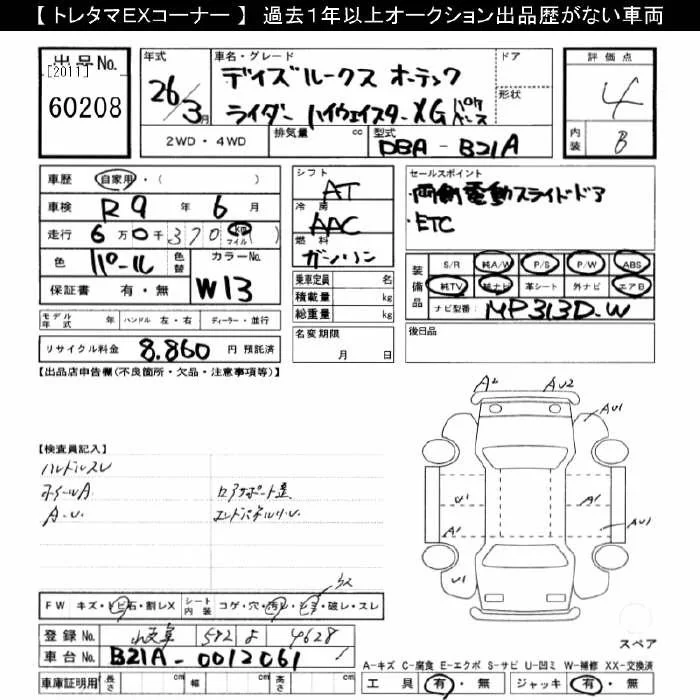 【 トレタマEXコーナー 】 過去1年以上オークション出品歴がない車両
出品No.
[2011]
60208
年式
26/3月
車名・グレード
デイズルークス オーテック
ライダー ハイウェイスターXG
ドア
形状
評価点
4
内装 B
2WD・4WD
排気量 cc
型式 DBA-B21A
車歴 自家用・( )
車検 R9年 6月
走行 6万0千370 km マイル ( )
色 パール
色替
カラーNo. W13
保証書 有・無
シフト AT
冷房 AAC
燃料 ガソリン
乗車定員 名
積載量 kg
総重量 kg
セールスポイント
・両側電動スライドドア
・ETC
装備品
S/R 純A/W P/S P/W ABS
純TV 純ナビ 革シート 外ナビ エアB
ナビ型番: MP313D-W
モデル年式 年 ハンドル 左・右 ディーラー・並行
名変期限
月 日
後日品
リサイクル料金 8.860 円 預託済
【出品店申告欄(不良箇所・欠品・注意事項等)】
A2 AU2 AU1
U1 A1 A1 AU1 U1
【検査員記入】
ハンドルスレ
ホイールA
A・U
FW キズ・トビ石・割レX
シート内装 コゲ・穴・汚レ・シミ・破レ・スレ
登録No. 岐阜 582 よ 4628
車台No. B21A-0012061
スペア
A-キズ C-腐食 E-エクボ S-サビ U-凹ミ W-補修 XX-交換済
車庫証明用 長さ cm 幅 cm 高さ cm
工具 有・無 ジャッキ 有・無